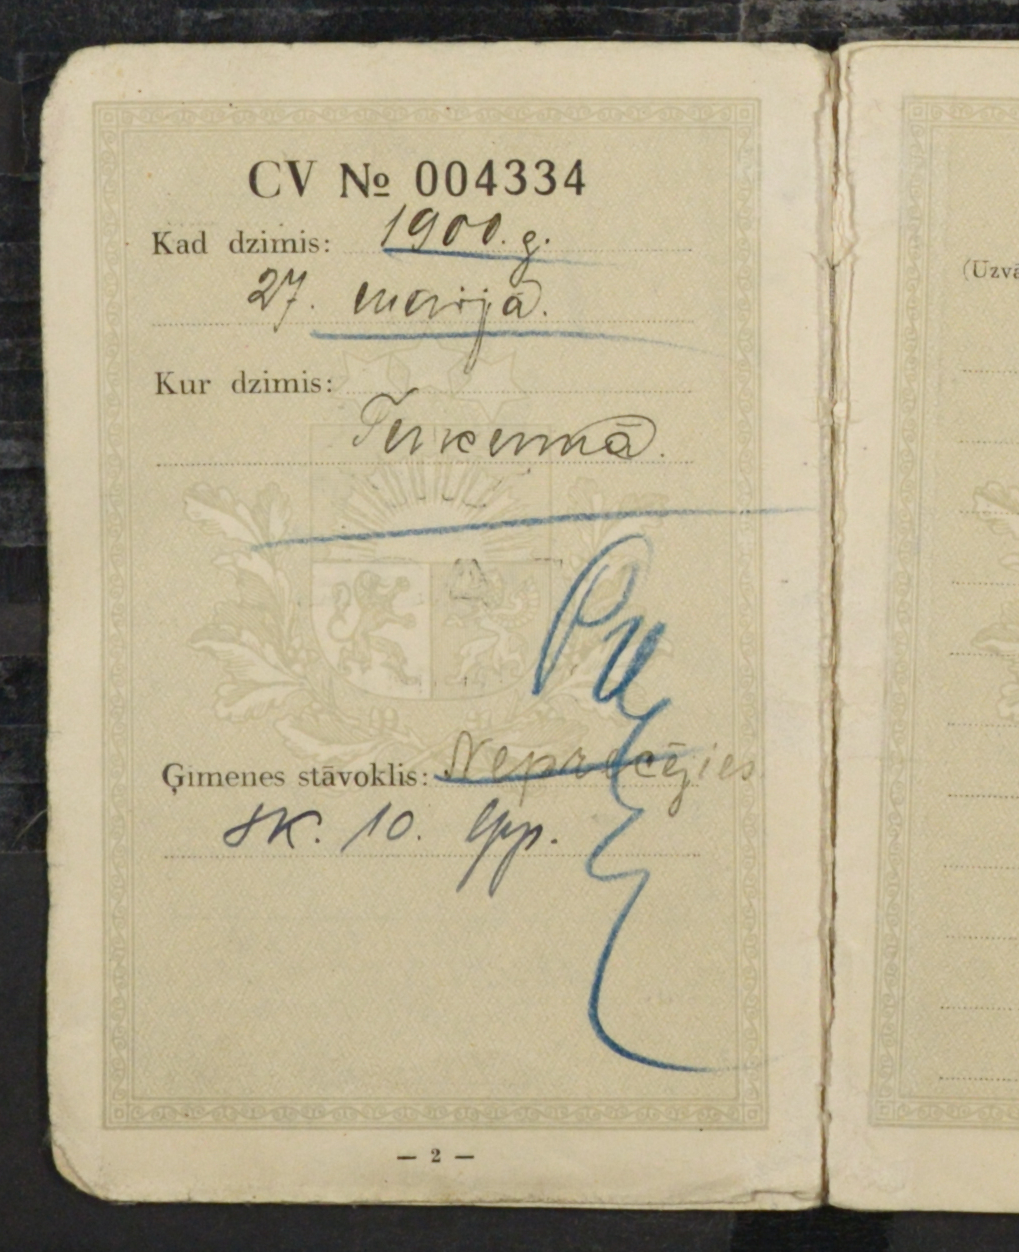 CV № 004334
Kad dzimis: 1900. g.
27. maijā.
Kur dzimis:
Ģimenes stāvoklis: Neprecējies
sk. 10. lpp.
— 2 —
(Uzvā